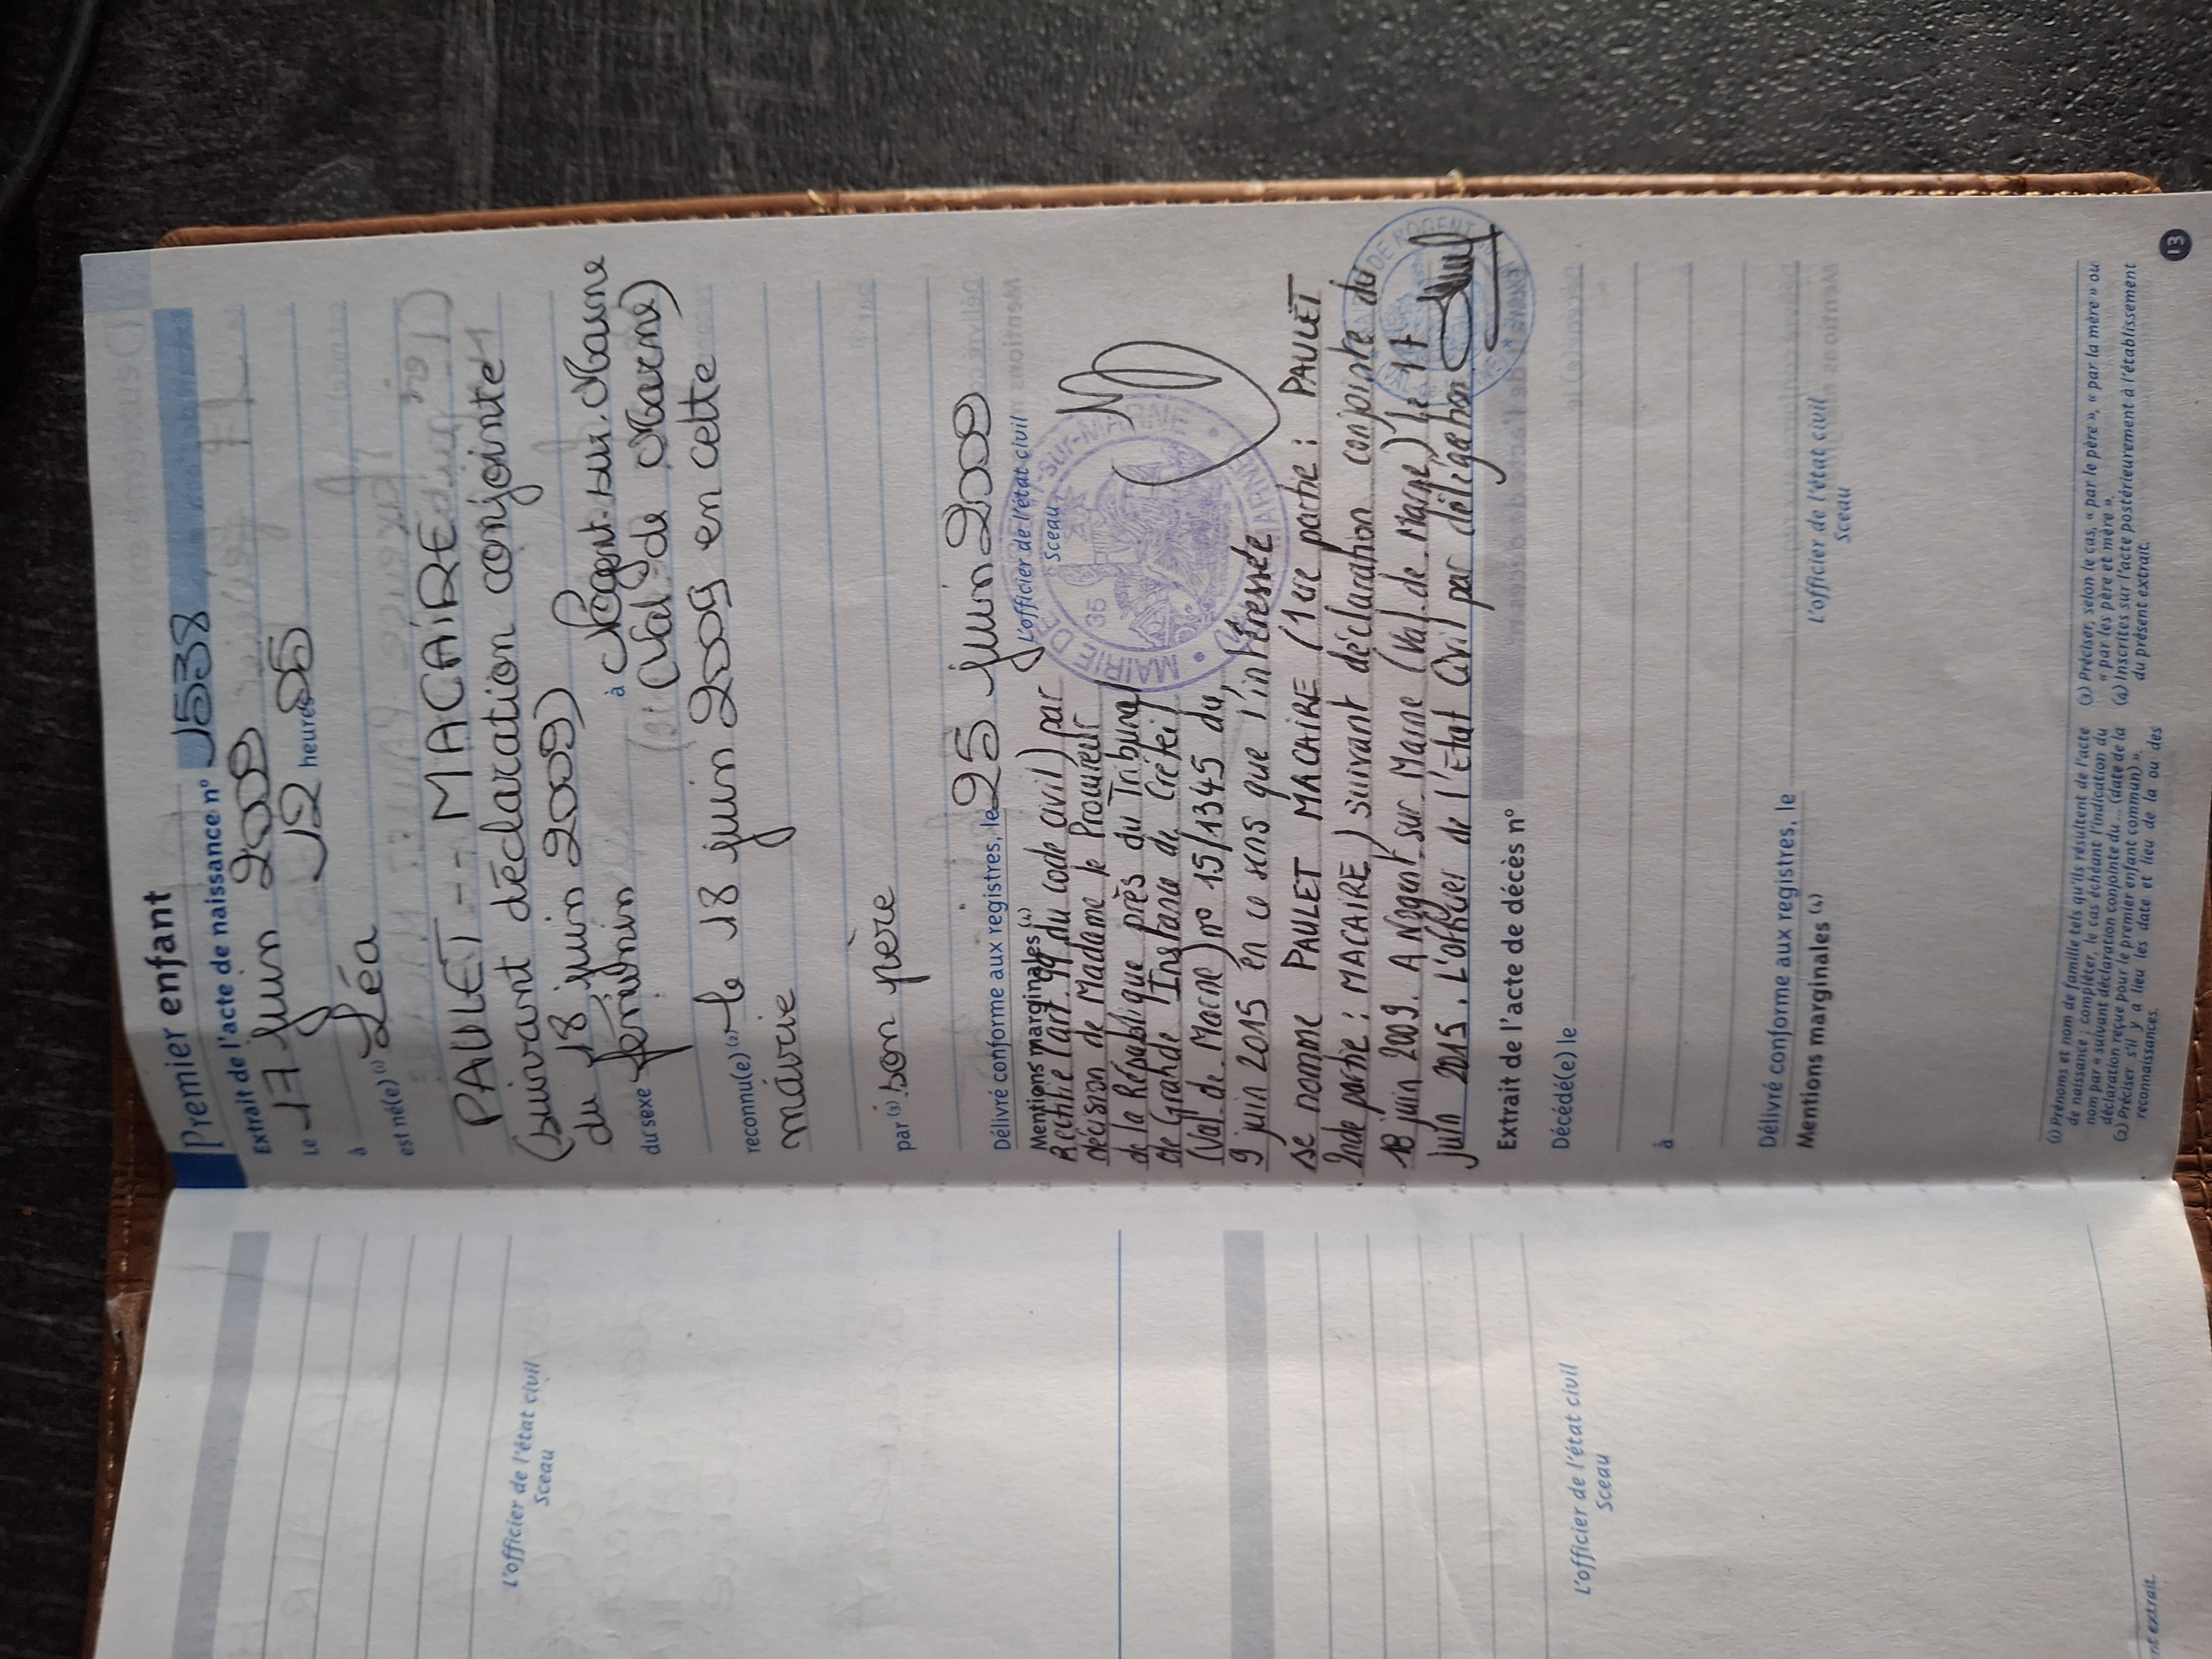 Premier enfant
Extrait de l'acte de naissance n° 1538
Le 17 juin 2009
à 12 heures 25
est né(e) (1) Léa
PAULET -- MACAIRE
(suivant déclaration conjointe
du 18 juin 2009)
du sexe féminin à Nogent-sur-Marne
(Val-de-Marne)
reconnu(e) (2) le 18 juin 2009 en cette
mairie
par (3) son père
Délivré conforme aux registres, le 25 juin 2009
L'officier de l'état civil
Sceau
MAIRIE DE SUR-MARNE MARNE
Mentions marginales (4)
Rectifié (art. 99 du code civil) par
décision de Madame le Procureur
de la République près du Tribunal
de Grande Instance de Créteil
(Val de Marne) n° 15/1345 du
9 juin 2015 en ce sens que l'intéressée
se nomme PAULET MACAIRE (1ere partie : PAULET
2nde partie : MACAIRE) suivant déclaration conjointe du
18 juin 2009. A Nogent sur Marne (Val de Marne) le 17
juin 2015. L'officier de l'Etat Civil par délégation
DE NOGENT
Extrait de l'acte de décès n°
Décédé(e) le
à
Délivré conforme aux registres, le
Mentions marginales (4)
L'officier de l'état civil
Sceau
(1) Prénoms et nom de famille tels qu'ils résultent de l'acte
de naissance ; compléter, le cas échéant l'indication du
nom par « suivant déclaration conjointe du... (date de la
déclaration reçue pour le premier enfant commun) ».
(2) Préciser s'il y a lieu les date et lieu de la ou des
reconnaissances.
(3) Préciser, selon le cas, « par le père », « par la mère » ou
« par les père et mère ».
(4) Inscrites sur l'acte postérieurement à l'établissement
du présent extrait.
13
L'officier de l'état civil
Sceau
L'officier de l'état civil
Sceau
nt extrait.